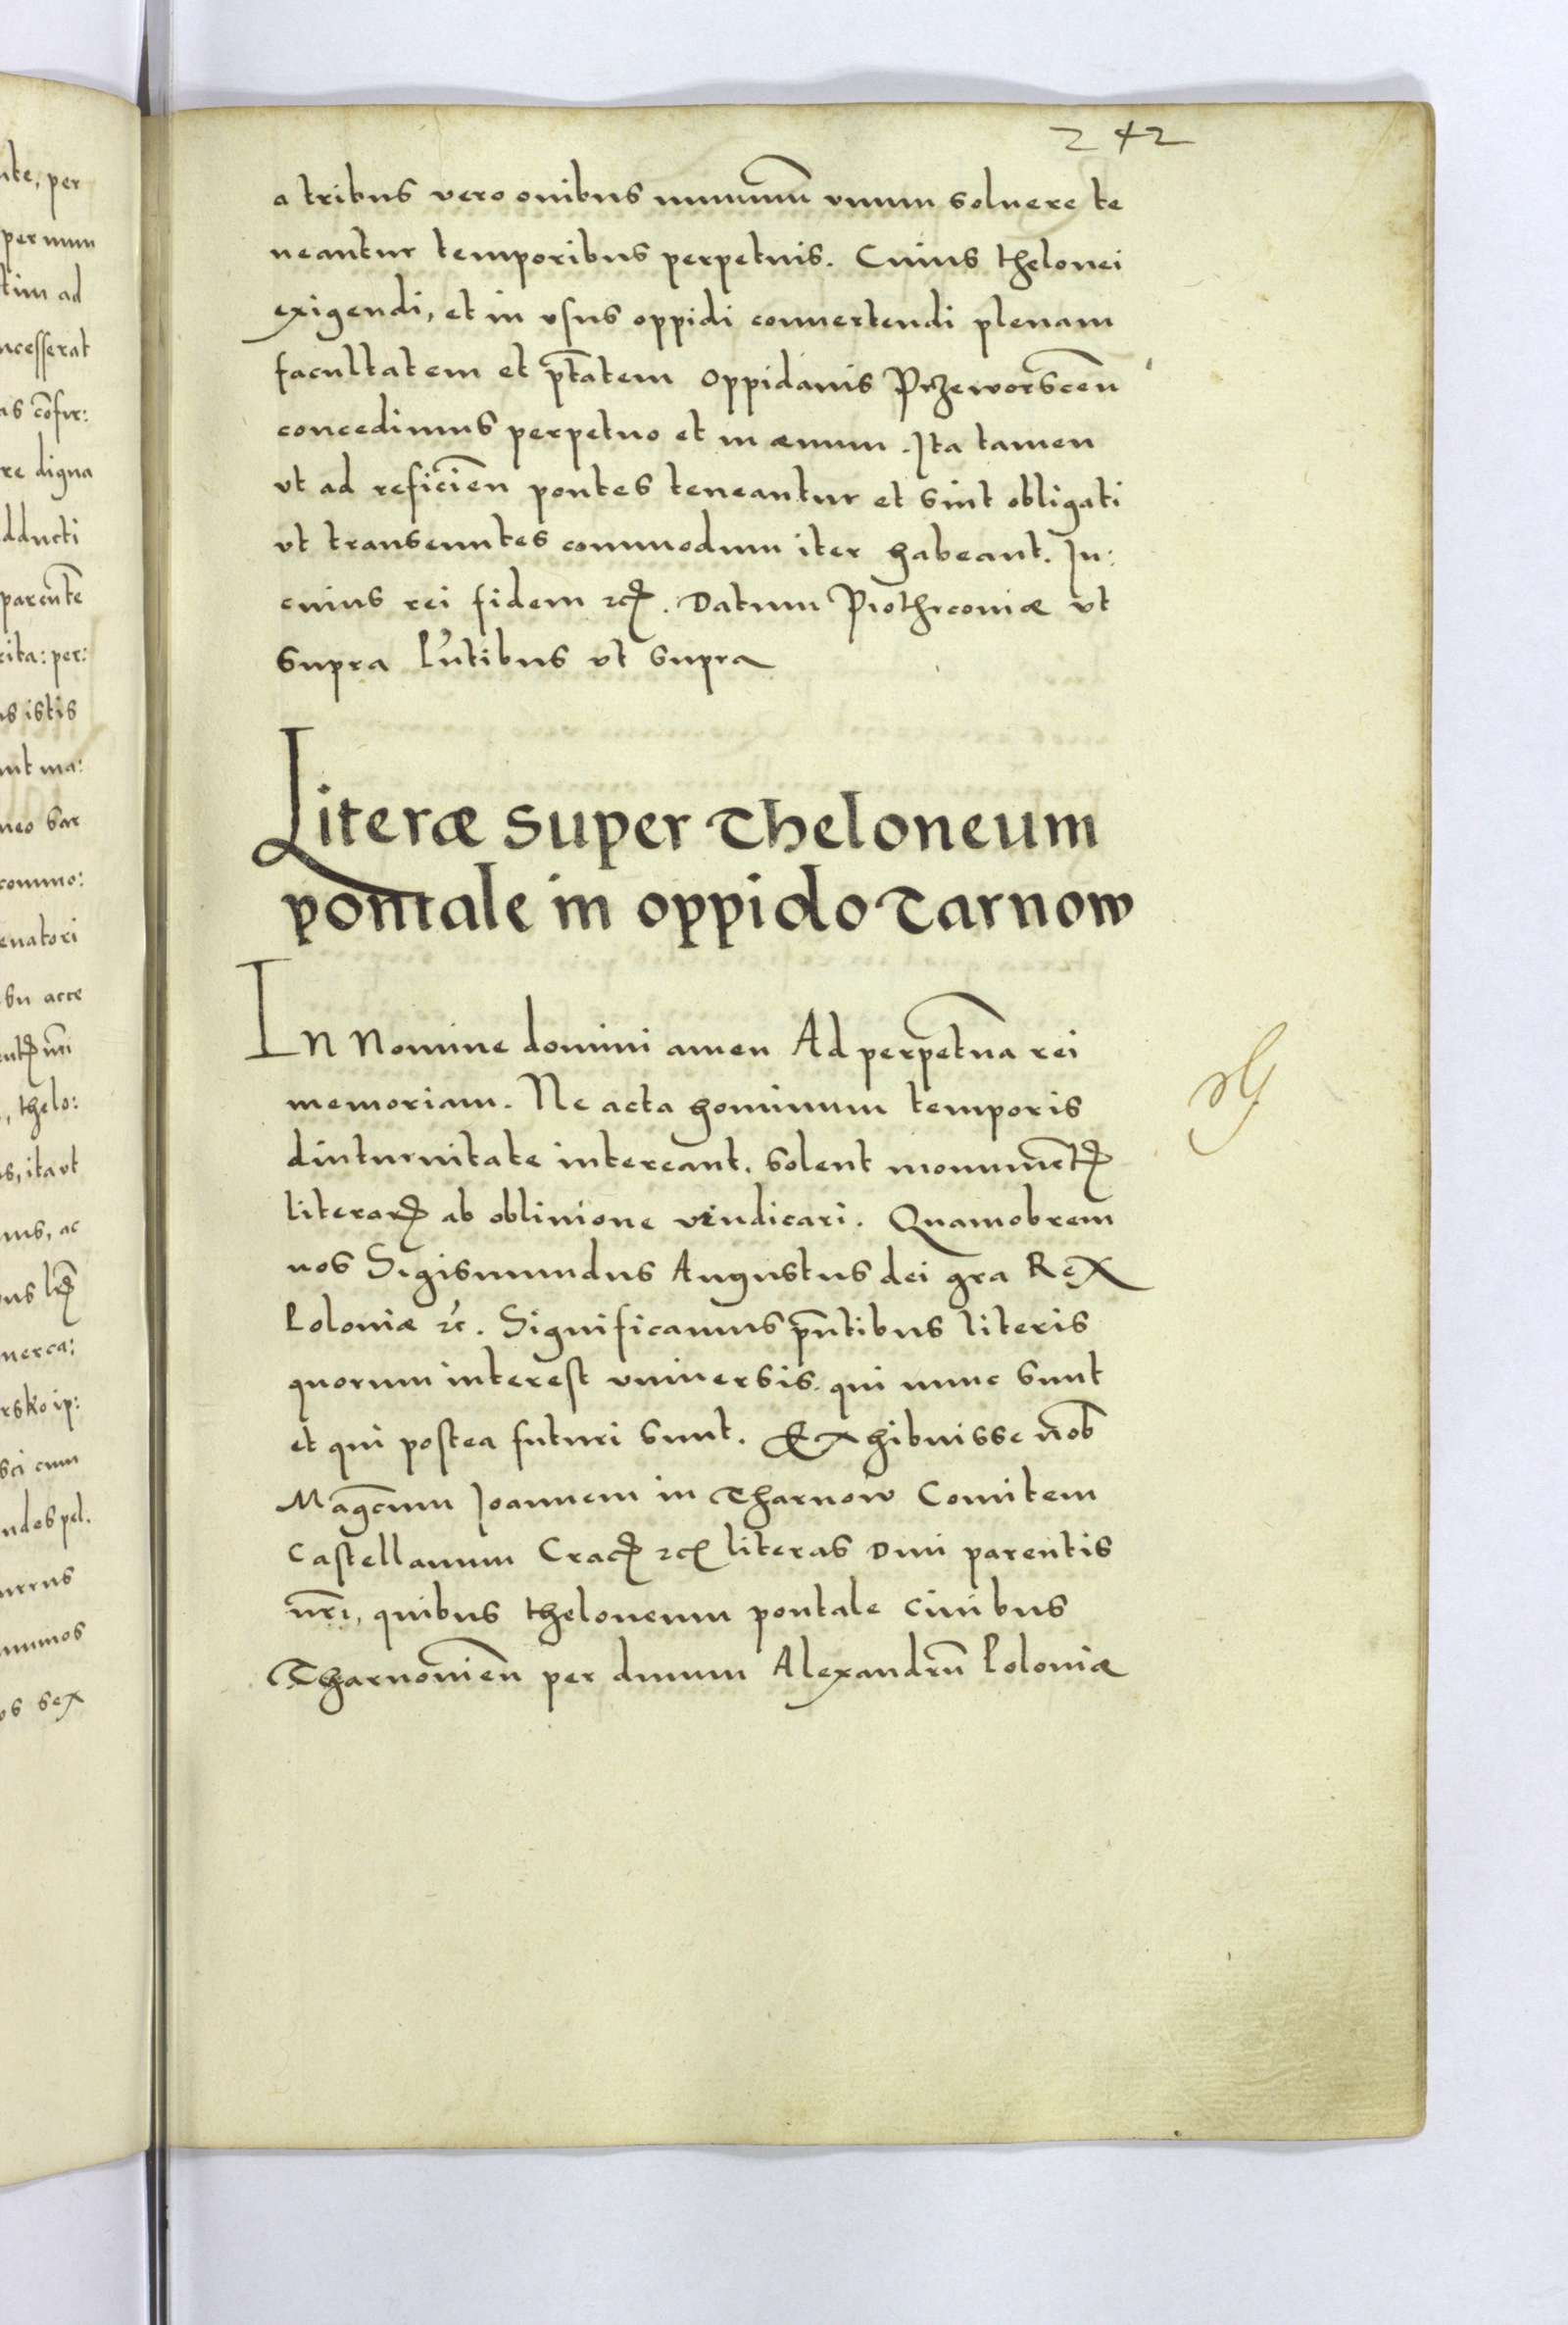 242
a tribus vero ouibus nummū vnum soluere te
neantur temporibus perpetuis. Cuius thelonei
exigendi, et in vsus oppidi conuertendi plenam
facultatem et ptatem oppidanis Przeworscen̄
concedimus perpetuo et in æuum. Ita tamen
vt ad reficien̄ pontes teneantur et sint obligati
vt transeuntes commodum iter habeant. In:
cuius rei fidem ꝛcꝭ. Datum Piothrcouiæ vt
supra P̄ntibus vt supra
Literæ super Theloneum
pontale in oppido Tarnow
In Nomine domini amen Ad perpetuā rei
memoriam. Ne acta hominum temporis
diuturnitate intereant. solent monumētꝭ
literarꝭ ab obliuione vindicari. Quamobrem
nos Sigismundus Augustus dei gra Rex
Poloniæ ꝛc. Significamus p̄ntibus literis
quorum interest vniuersis. qui nunc sunt
et qui postea futuri sunt. Exhibuisse nob̄
Magcum Joannem in Tharnow Comitem
Castellanum Cracꝭ ꝛcꝭ literas Dni parentis
nr̄i, quibus theloneum pontale ciuibus
Tharnouien̄ per dnum Alexandrū Poloniæ
nte, per
per num
tim ad
ncesserat
as cōfir:
re digna
dducti
parentē
rita: per:
as istis
unt ma:
neo sar
commo:
enatori
, thelo:
is, ita vt
mus, ac
merca:
rsko ip:
sci cum
ndos pel.
urrus
nummos
os sex